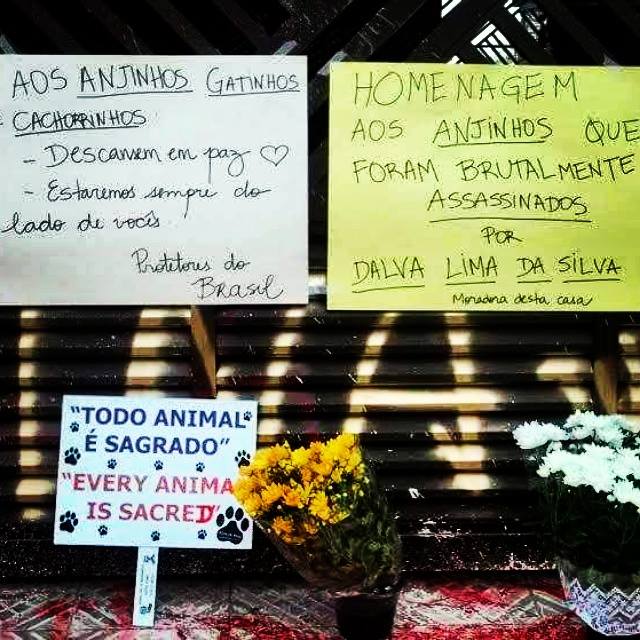 AOS ANJINHOS GATINHOS
E CACHORRINHOS
- Descansem em paz ♡
- Estaremos sempre do
lado de vocês.
Protetores do
Brasil
HOMENAGEM
AOS ANJINHOS QUE
FORAM BRUTALMENTE
ASSASSINADOS
POR
DALVA LIMA DA SILVA
Moradora desta casa
"TODO ANIMAL
É SAGRADO"
"EVERY ANIMA
IS SACRED"